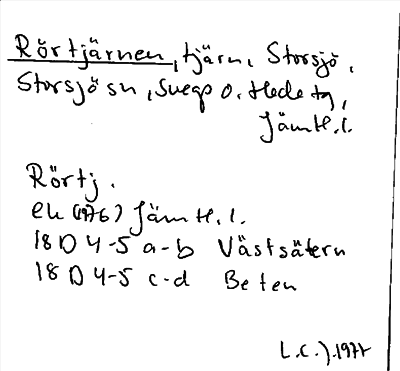 Rörtjärnen, tjärn, Storsjö,
Storsjö sn, Svegs o. Hede tg,
Jämtl. l.
Rörtj.
ek (1976) Jämtl. l.
18 D 4-5 a-b Västsätern
18 D 4-5 c-d Beten
L.C.J. 1977